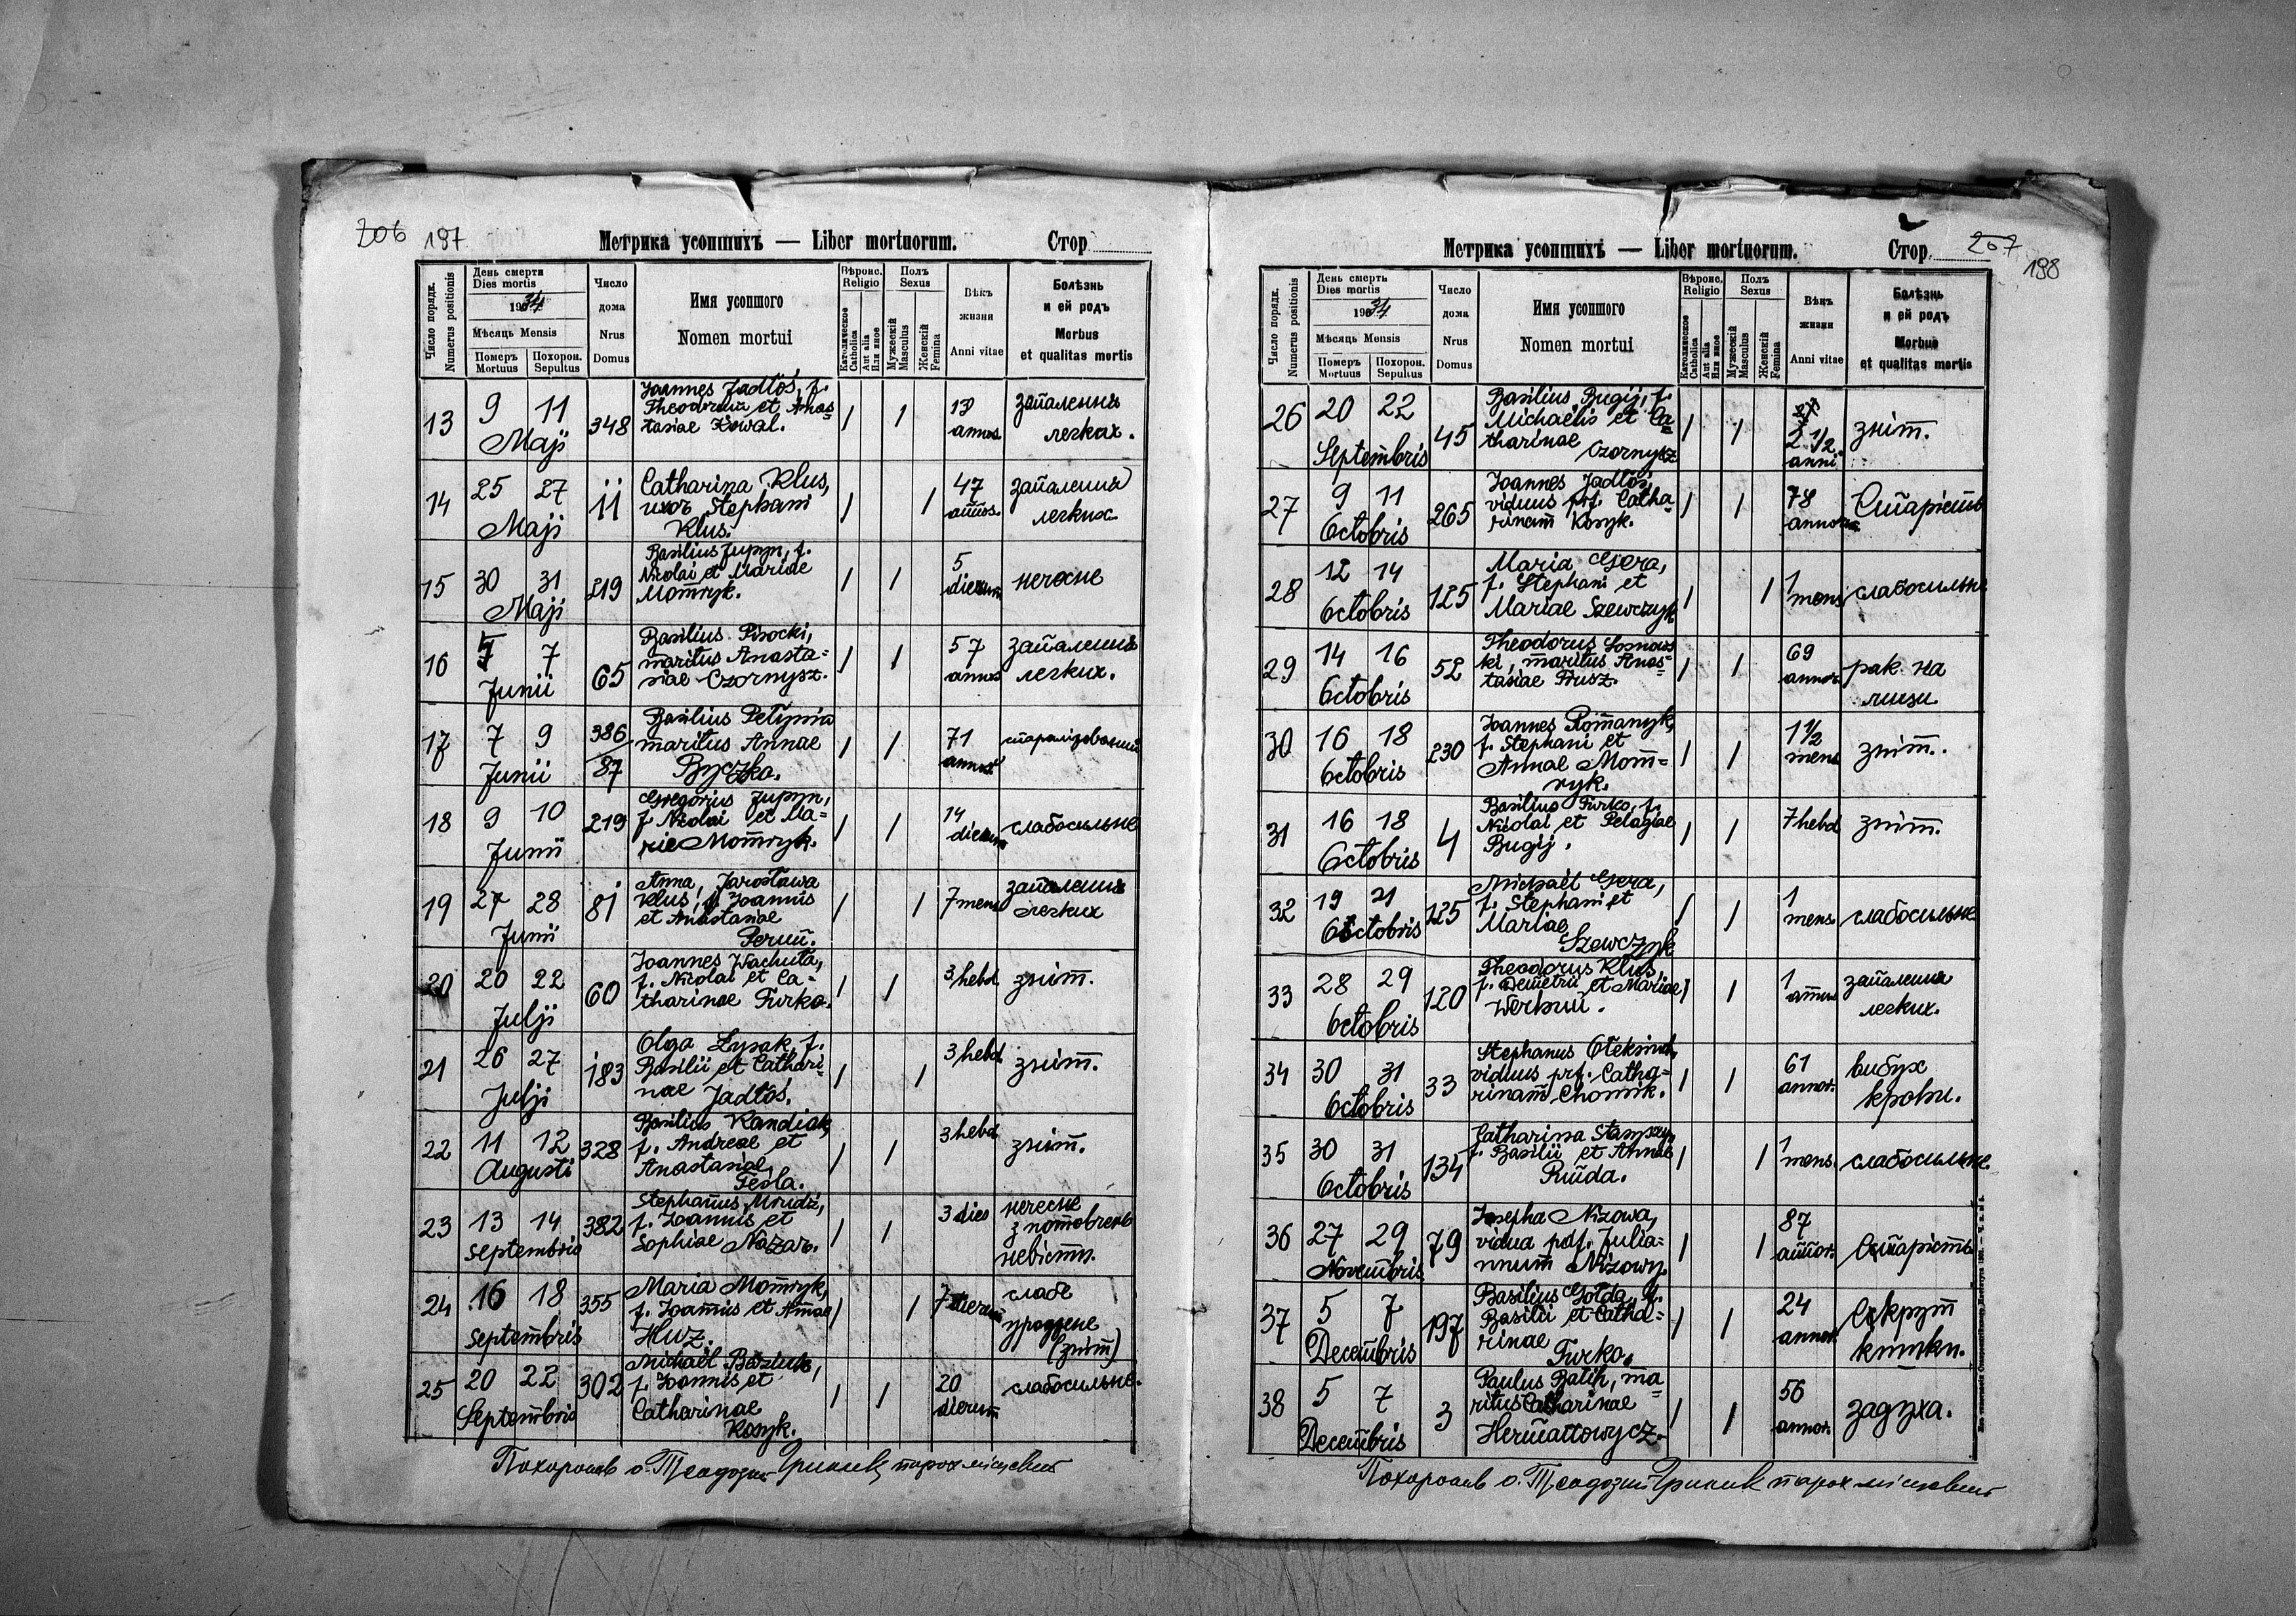 206 197
Метрика усопшихъ — Liber mortuorum. Стор.
Число порядк. Numerus positionis
День смерти
Dies mortis
1934
Мѣсяць Mensis
Померъ Mortuus
Похорон. Sepultus
Число дома
Nrus Domus
Имя усопшого
Nomen mortui
Вѣроис. Religio
Католическое Catholica
Или иное Aut alia
Полъ Sexus
Мужескій Masculus
Женскій Femina
Вѣкъ жизни
Anni vitae
Болѣзнь и ей родъ
Morbus et qualitas mortis
13 9 11 Maji 348
Joannes Jadłoś, f.
Theodori et Anas=
tasiae Kowal.
annos
запалення
легких.
14 25 27 Maji 11
Catharina Klus,
uxor Stephani
Klus.
47 annos.
запалення
легких
15 30 31 Maji 219
Basilius Jupyn, f.
Nicolai et Mariae
Momryk.
5 dierum
16 7 Junii 65
Basilius Pisocki,
maritus Anasta=
siae Czornysz.
57 annos
запалення
легких.
17 7 9 Junii 386/87
Basilius Petynia
maritus Annae
Byczko.
71 annos
18 9 10 Junii 219
Gregorius Jupyn,
f. Nicolai et Ma=
rie Momryk.
14 dierum
слабосильне
19 27 28 Junii 81
Anna, Jarosława
Klus, f. Joannis
et Anastasiae
7 mens
запалення
легких
20 20 22 Julji 60
Joannes Wachuła,
f. Nicolai et Ca=
tharinae Furko.
3 hebd.
зніт.
21 26 27 Julji 183
Olga Łysak, f.
Basilii et Cathari=
nae Jadłoś.
3 hebd.
зніт.
22 11 12 Augusti 328
Basilius Kandiak,
f. Andreae et
Anastasiae
Fesla.
3 hebd
зніт.
23 13 14 Septembris 382
Stephanus Mrudź,
f. Joannis et
Sophiae Nazar.
3 dies
нечесне
з потовчень
невісти.
24 16 18 Septembris 355
Maria Momryk,
f. Joannis et Annae
Huz.
7 dierum
слабе
уроджене
(зніт)
25 20 22 Septembris 302
Michaël Baziuk,
f. Joannis et
Catharinae
Kosyk.
20 dierum
слабосильне.
Похоронив о. Теодозий парох місцевий
207 198
Метрика усопшихъ — Liber mortuorum. Стор.
Число порядк. Numerus positionis
День смерть
Dies mortis
1934
Мѣсяць Mensis
Померъ Mortuus
Похорон. Sepultus
Число дома
Nrus Domus
Имя усопшого
Nomen mortui
Вѣроис. Religio
Католическое Catholica
Или иное Aut alia
Полъ Sexus
Мужескій Masculus
Женскій Femina
Вѣкъ жизни
Anni vitae
Болѣзнь и ей родъ
Morbus et qualitas mortis
26 20 22 Septembris 45
Basilius Bugij, f.
Michaëlis et Ca=
tharinae
Czornysz
2 1/2 anni
зніт.
27 9 11 Octobris 265
Joannes Jadłoś,
viduus prf. Catha=
rinam Kosyk.
78 annor.
Старість
28 12 14 Octobris 125
Maria Gera,
f. Stephani et
Mariae Szewczyk
1 mens
слабосильне
29 14 16 Octobris 52
Theodorus Sosnows
ki, maritus Anas=
tasiae Prusz.
69 annor.
рак на
лиzи
30 16 18 Octobris 230
Joannes Romanyk,
f. Stephani et
Annae Mom=
ryk.
1 1/2 mens
зніт.
31 16 18 Octobris 4
Basilius Furko, f.
Nicolai et Pelagiae
Bugij.
7 hebd
зніт.
32 19 21 Octobris 125
Michaël Gera,
f. Stephani et
Mariae
Szewczyk
1 mens.
слабосильне
33 28 29 Octobris 120
Theodorus Klus,
f. Demetrii et Mariae
Werbuii.
1 annus
запалення
легких.
34 30 31 Octobris 33
Stephanus
viduus prf. Catha=
rinam Chomik.
61 annor.
вибух
крови.
35 30 31 Octobris 134
Catharina
f. Basilii et Annae
Ruda.
1 mens.
слабосильне.
36 27 29 Novembris 79
Josepha Nizowa,
vidua pdf. Julia=
nnum Nizowy.
87 annor.
Старість
37 5 7 Decembris 197
Basilius Gołda, f.
Basilii et Catha=
rinae
Furko.
24 annor.
Скрут
кишки.
38 5 7 Decembris 3
Paulus Batih, ma=
ritus Catharinae
Hermanowycz.
56 annor.
задуха.
Похоронив о. Теодозий парох місцевий